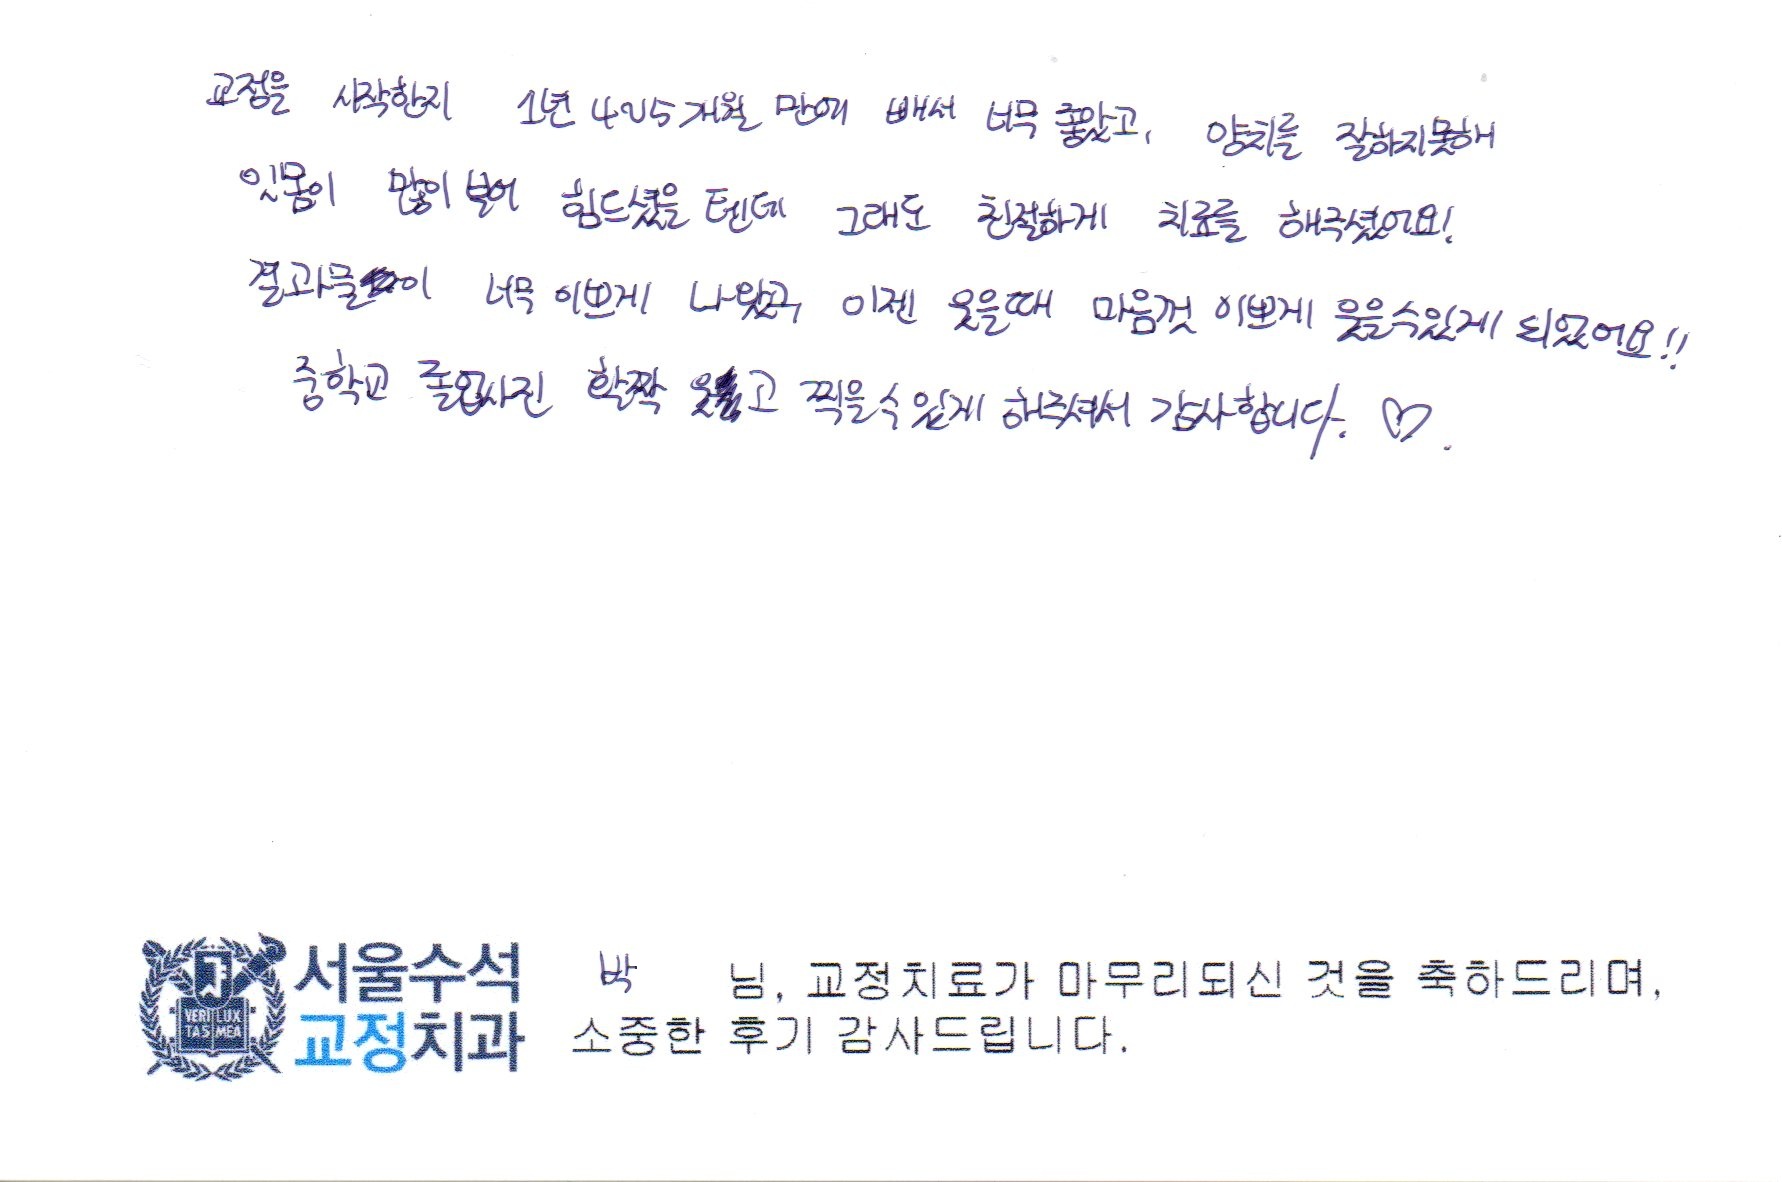 교정을 시작한지 1년 4~5개월 만에 빼서 너무 좋았고, 양치를 잘하지못해
잇몸이 많이 부어 힘드셨을 텐데 그래도 친절하게 치료를 해주셨어요!
결과물이 너무 이쁘게 나왔고, 이젠 웃을때 마음껏 이쁘게 웃을수있게 되었어요!!
중학교 졸업사진 활짝 웃고 찍을수 있게 해주셔서 감사합니다. ♡.
서울수석
교정치과
VERI LUX
TAS MEA
박 님, 교정치료가 마무리되신 것을 축하드리며,
소중한 후기 감사드립니다.